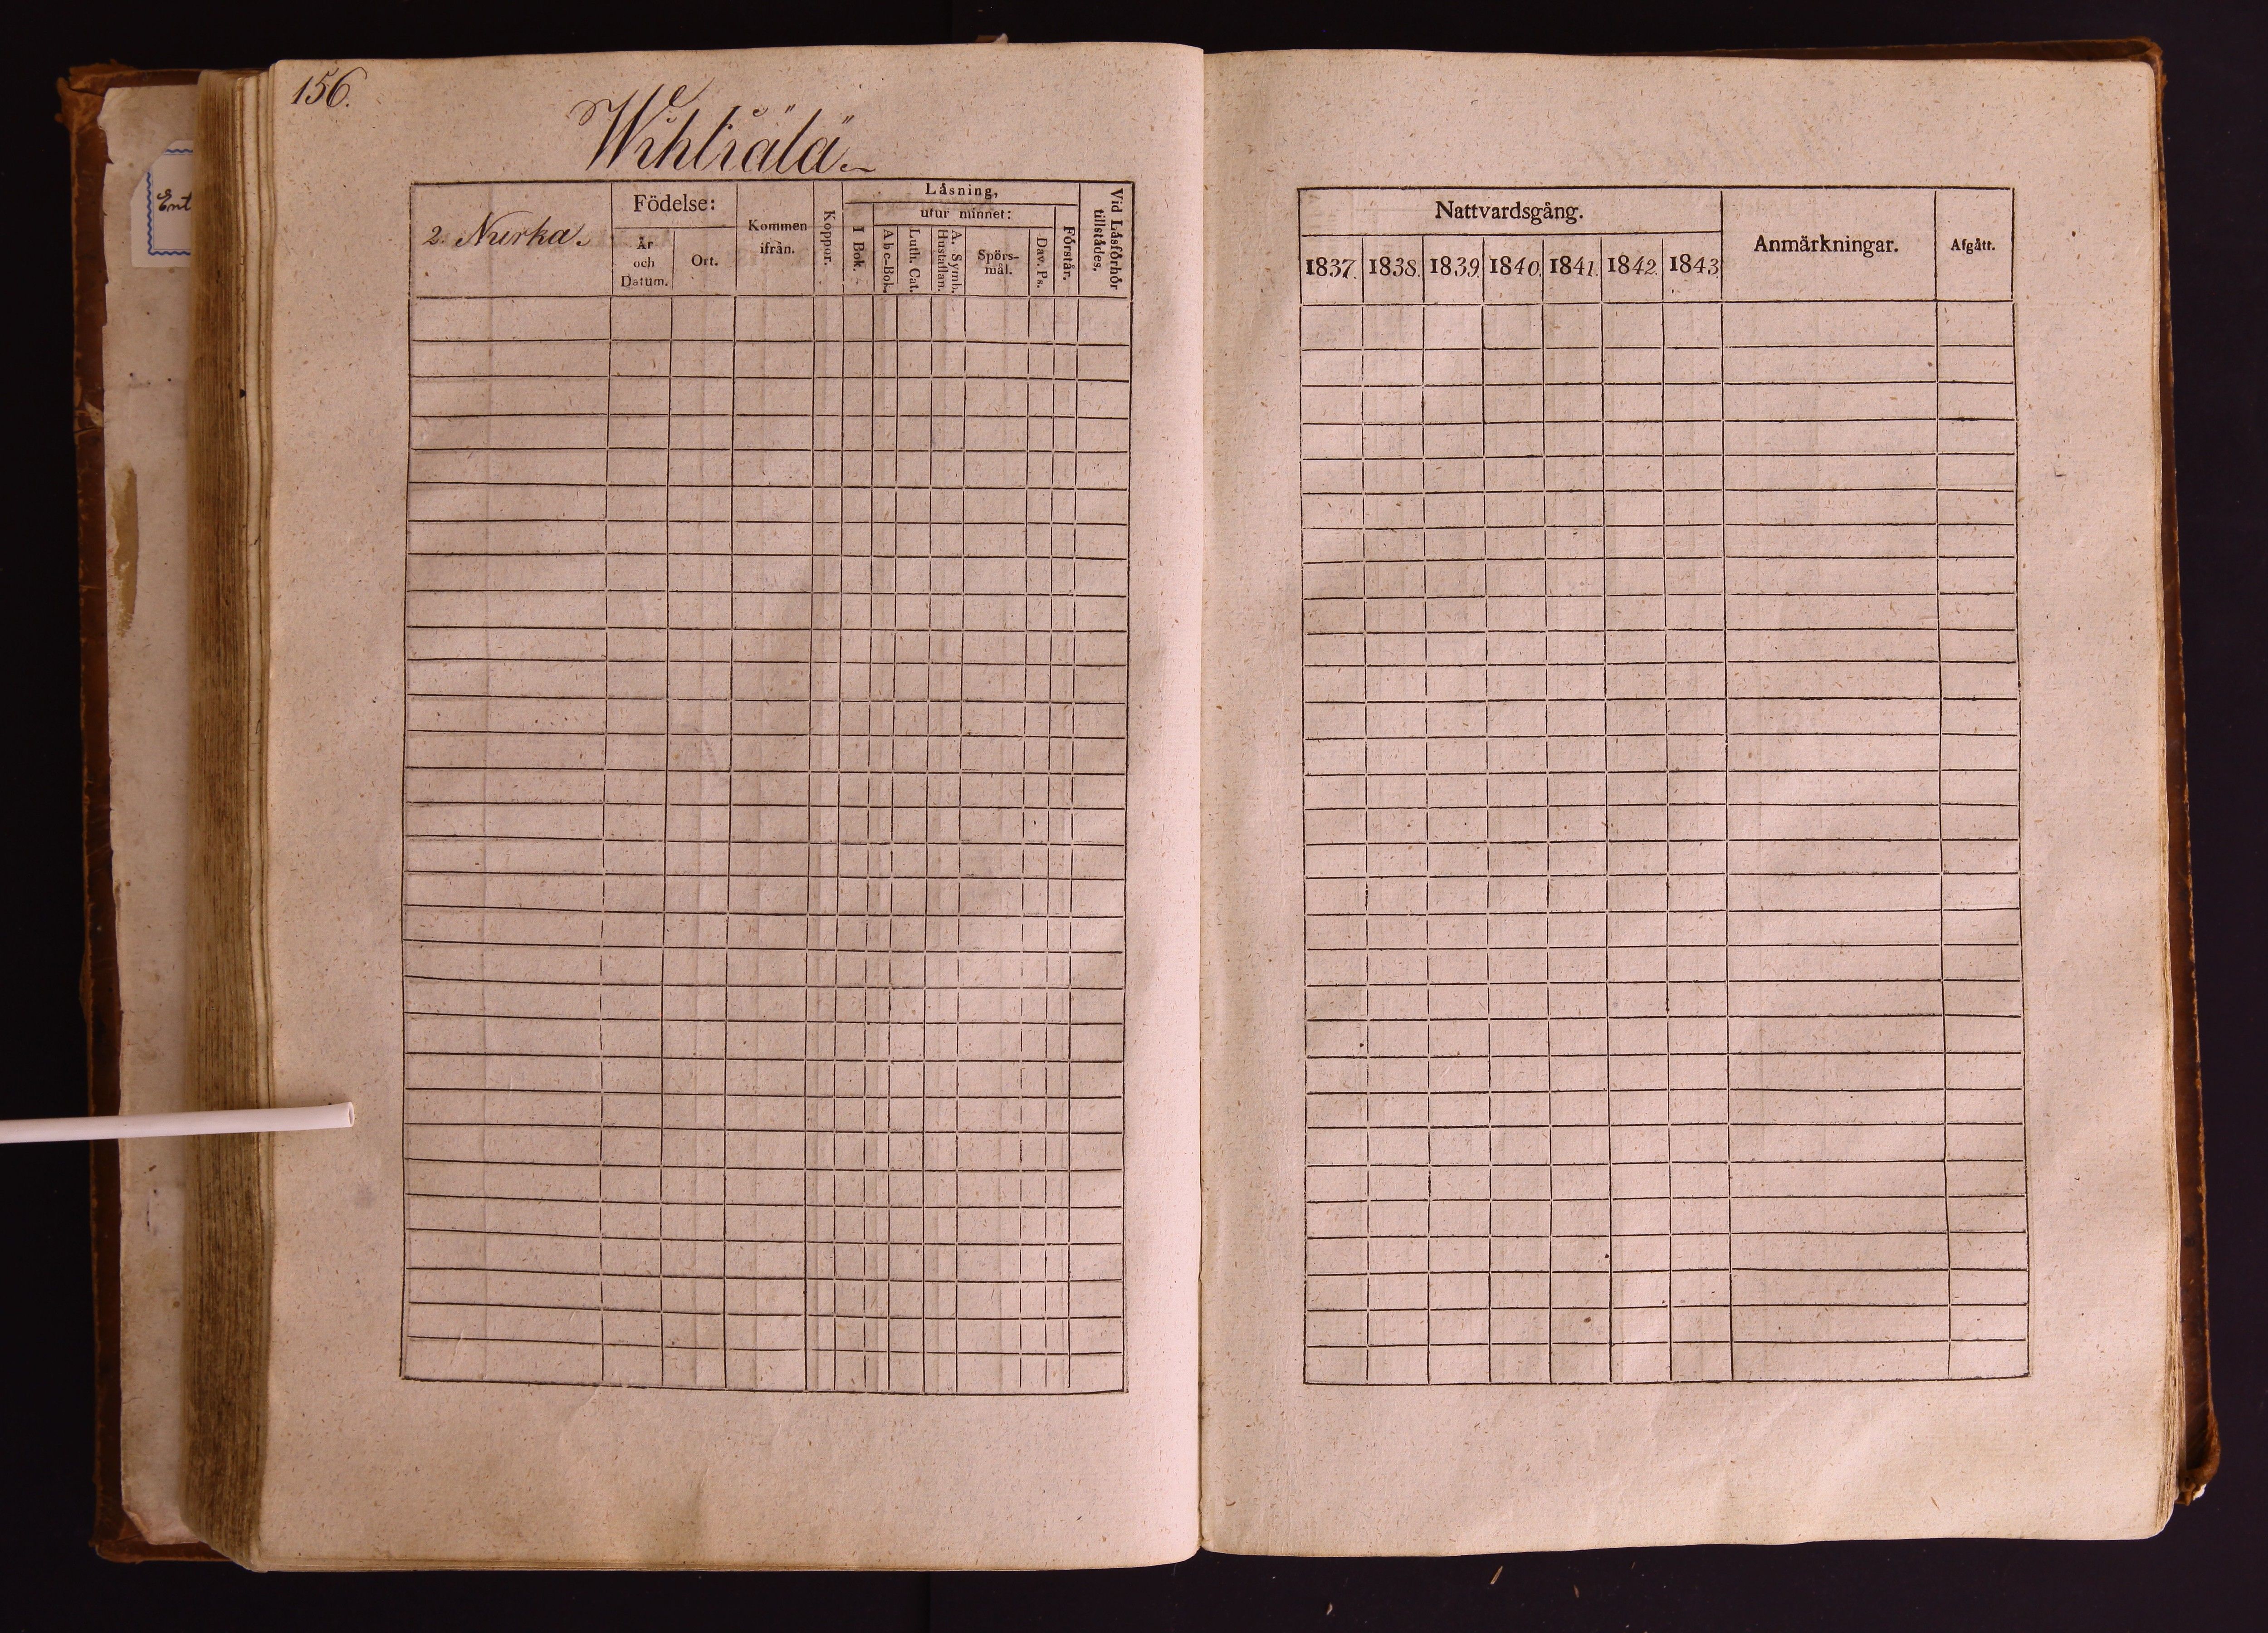 156.
Wihtiälä
Ent
2. Nurka.
Födelse:
År
och
Datum.
Ort.
Kommen
ifrån.
Koppor.
Läsning,
utur minnet:
I Bok.
Abc-Bok.
Luth. Cat.
A. Symb.
Hustaflan.
Spörs-
mål.
Dav. Ps.
Förstår.
Vid Läsförhör
tillstädes.
Nattvardsgång.
1837. 1838. 1839. 1840. 1841. 1842. 1843
Anmärkningar.
Afgått.